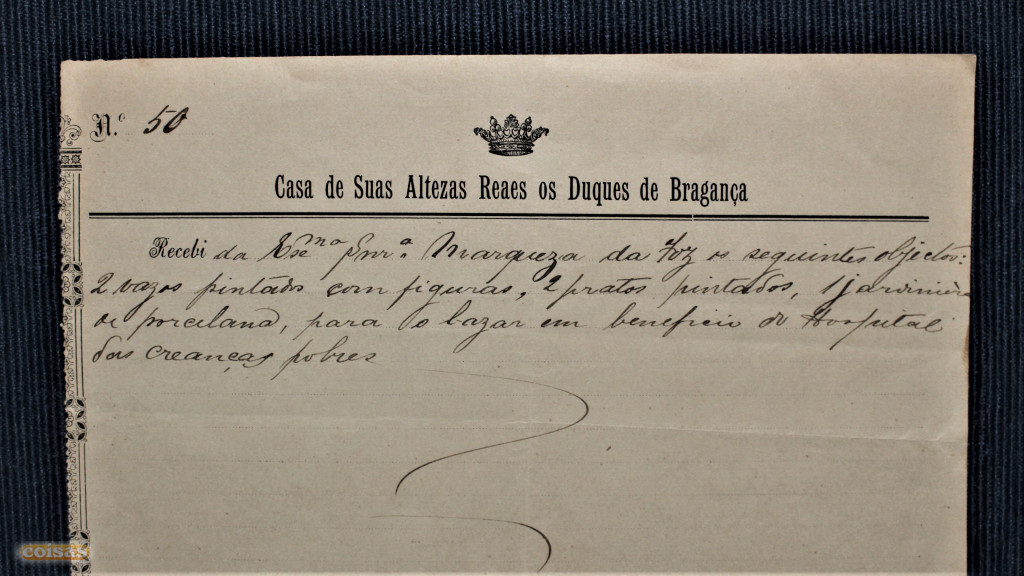 N.º 50
Casa de Suas Altezas Reaes os Duques de Bragança
Recebi da Exᵐᵃ Snrª. Marqueza da Foz os seguintes objectos:
2 vazos pintados com figuras, 2 pratos pintados, 1 jardiniére
de porcelana, para o bazar em beneficio do Hospital
das creanças pobres
coisas